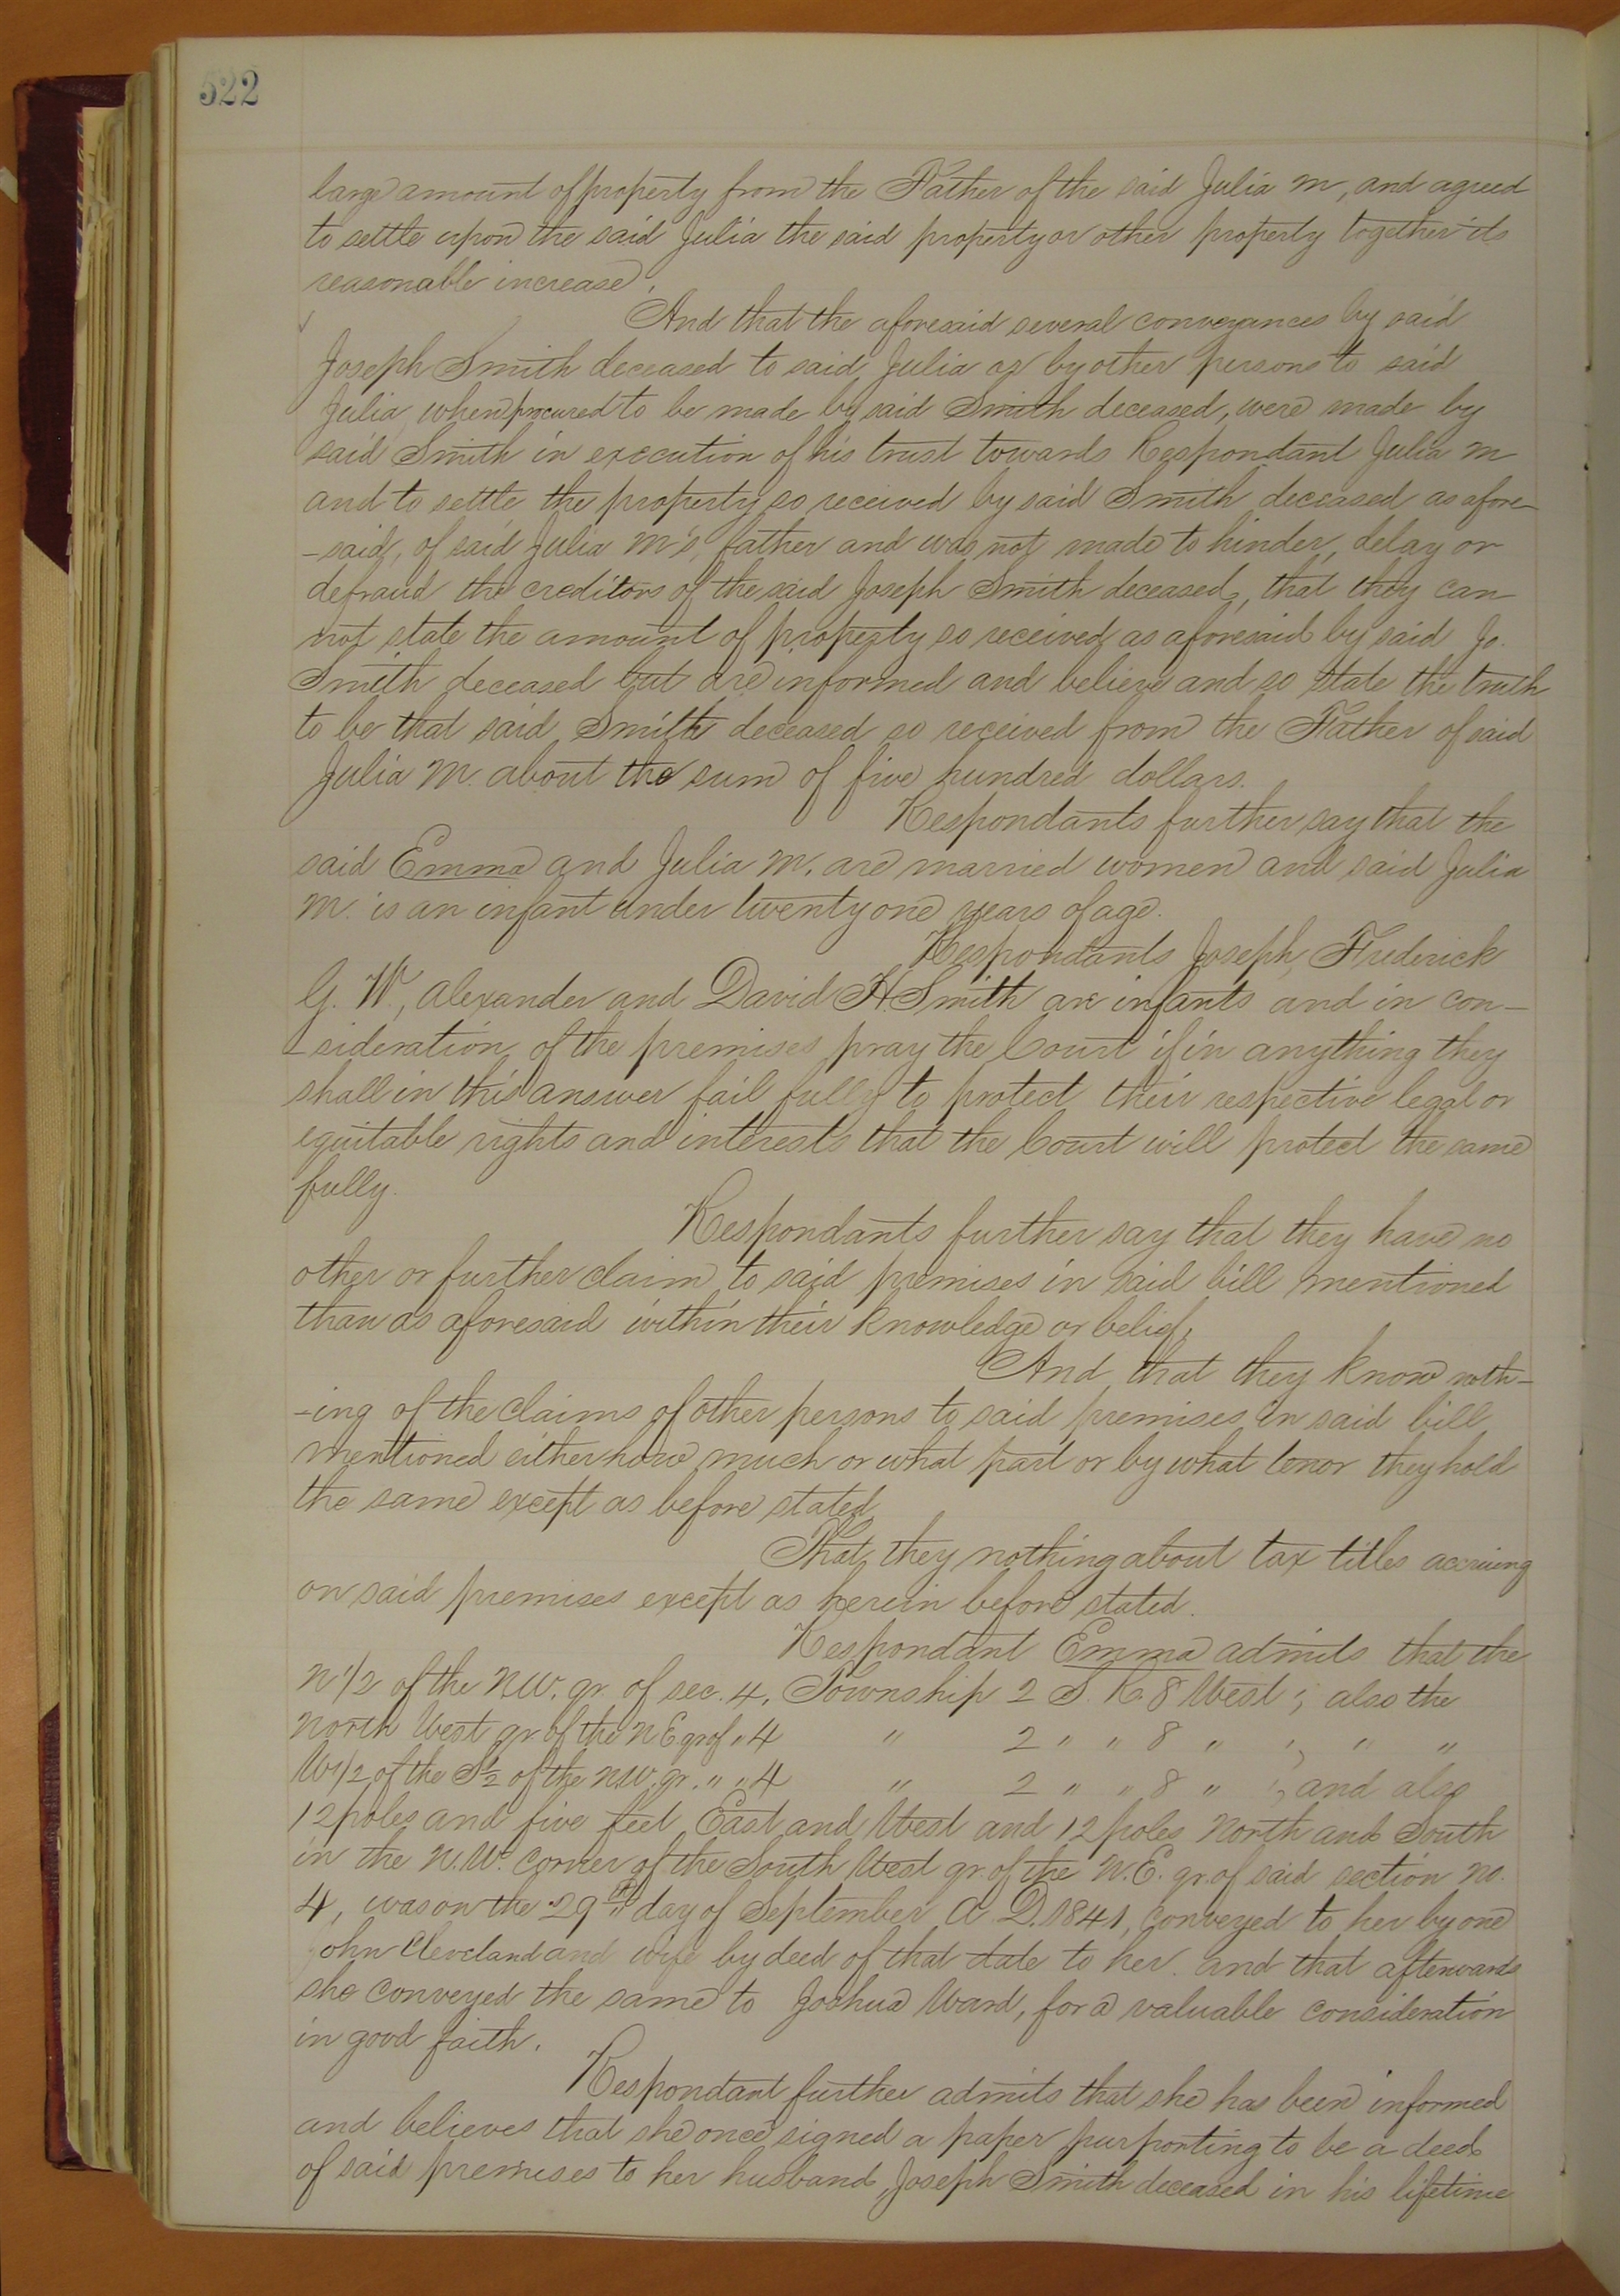 522
large amount of property from the Father of the said Julia M, and agreed
to settle upon the said Julia the said property or other property together its
reasonable increase.
And that the aforesaid several conveyances by said
Joseph Smith deceased to said Julia or by other persons to said
Julia when procured to be made by said Smith deceased, were made by
said Smith in execution of his trust towards Respondant Julia M
and to settle the property so received by said Smith deceased as afore-
-said, of said Julia M's, father and was not made to hinder, delay or
defraud the creditors of the said Joseph Smith deceased, that they can
not state the amount of property so received as aforesaid by said Jo.
Smith deceased but are informed and believe and so state the truth
to be that said Smith deceased so received from the Father of said
Julia M. about the sum of five hundred dollars.
Respondants further say that the
said Emma and Julia M. are married women and said Julia
M. is an infant under twenty one years of age.
Respondants Joseph, Frederick
G. W., Alexander and David H. Smith are infants and in con-
-sideration of the premises pray the Court if in anything they
shall in this answer fail fully to protect their respective legal or
equitable rights and interests that the Court will protect the same
fully.
Respondants further say that they have no
other or further claim to said premises in said bill mentioned
than as aforesaid within their knowledge or belief,
And that they know noth-
-ing of the claims of other persons to said premises in said bill
mentioned either how much or what part or by what tenor they hold
the same except as before stated
That they nothing about tax titles accruing
on said premises except as herein before stated.
Respondant Emma admits that the
N 1/2 of the N.W. qr. of sec. 4, Township 2 S. R. 8 West ; also the
North West qr. of the N E qr of " 4 " 2 " " 8 " ; " "
W 1/2 of the S 1/2 of the N.W. qr. " " 4 " 2 " " 8 " ; and also
12 poles and five feet East and West and 12 poles North and South
in the N.W. corner of the South West qr. of the N.E. qr. of said section No.
4, was on the 29th day of September A D. 1841, conveyed to her by one
John Cleveland and wife by deed of that date to her. and that afterwards
she conveyed the same to Joshua Ward, for a valuable consideration
in good faith.
Respondant further admits that she has been informed
and believes that she once signed a paper purporting to be a deed
of said premises to her husband, Joseph Smith deceased in his lifetime